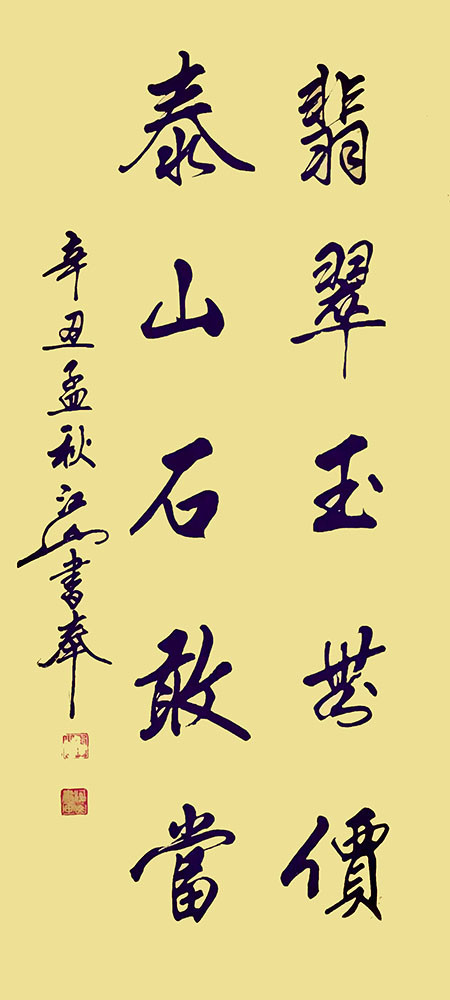 翡翠玉無價
泰山石敢當
辛丑孟秋江山書奉